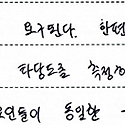 요구된다. 한편
타당도를 측정
요인들이 동일한